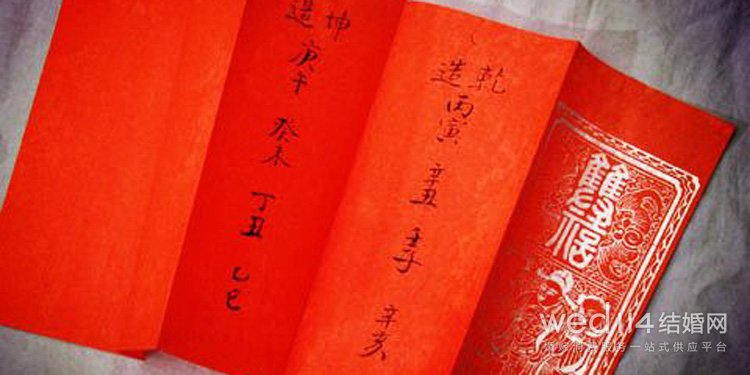 雙
乾造
丙寅
辛丑
壬子
辛亥
坤造
庚午
癸未
丁丑
乙巳
wed114结婚网
服务一站式供应平台